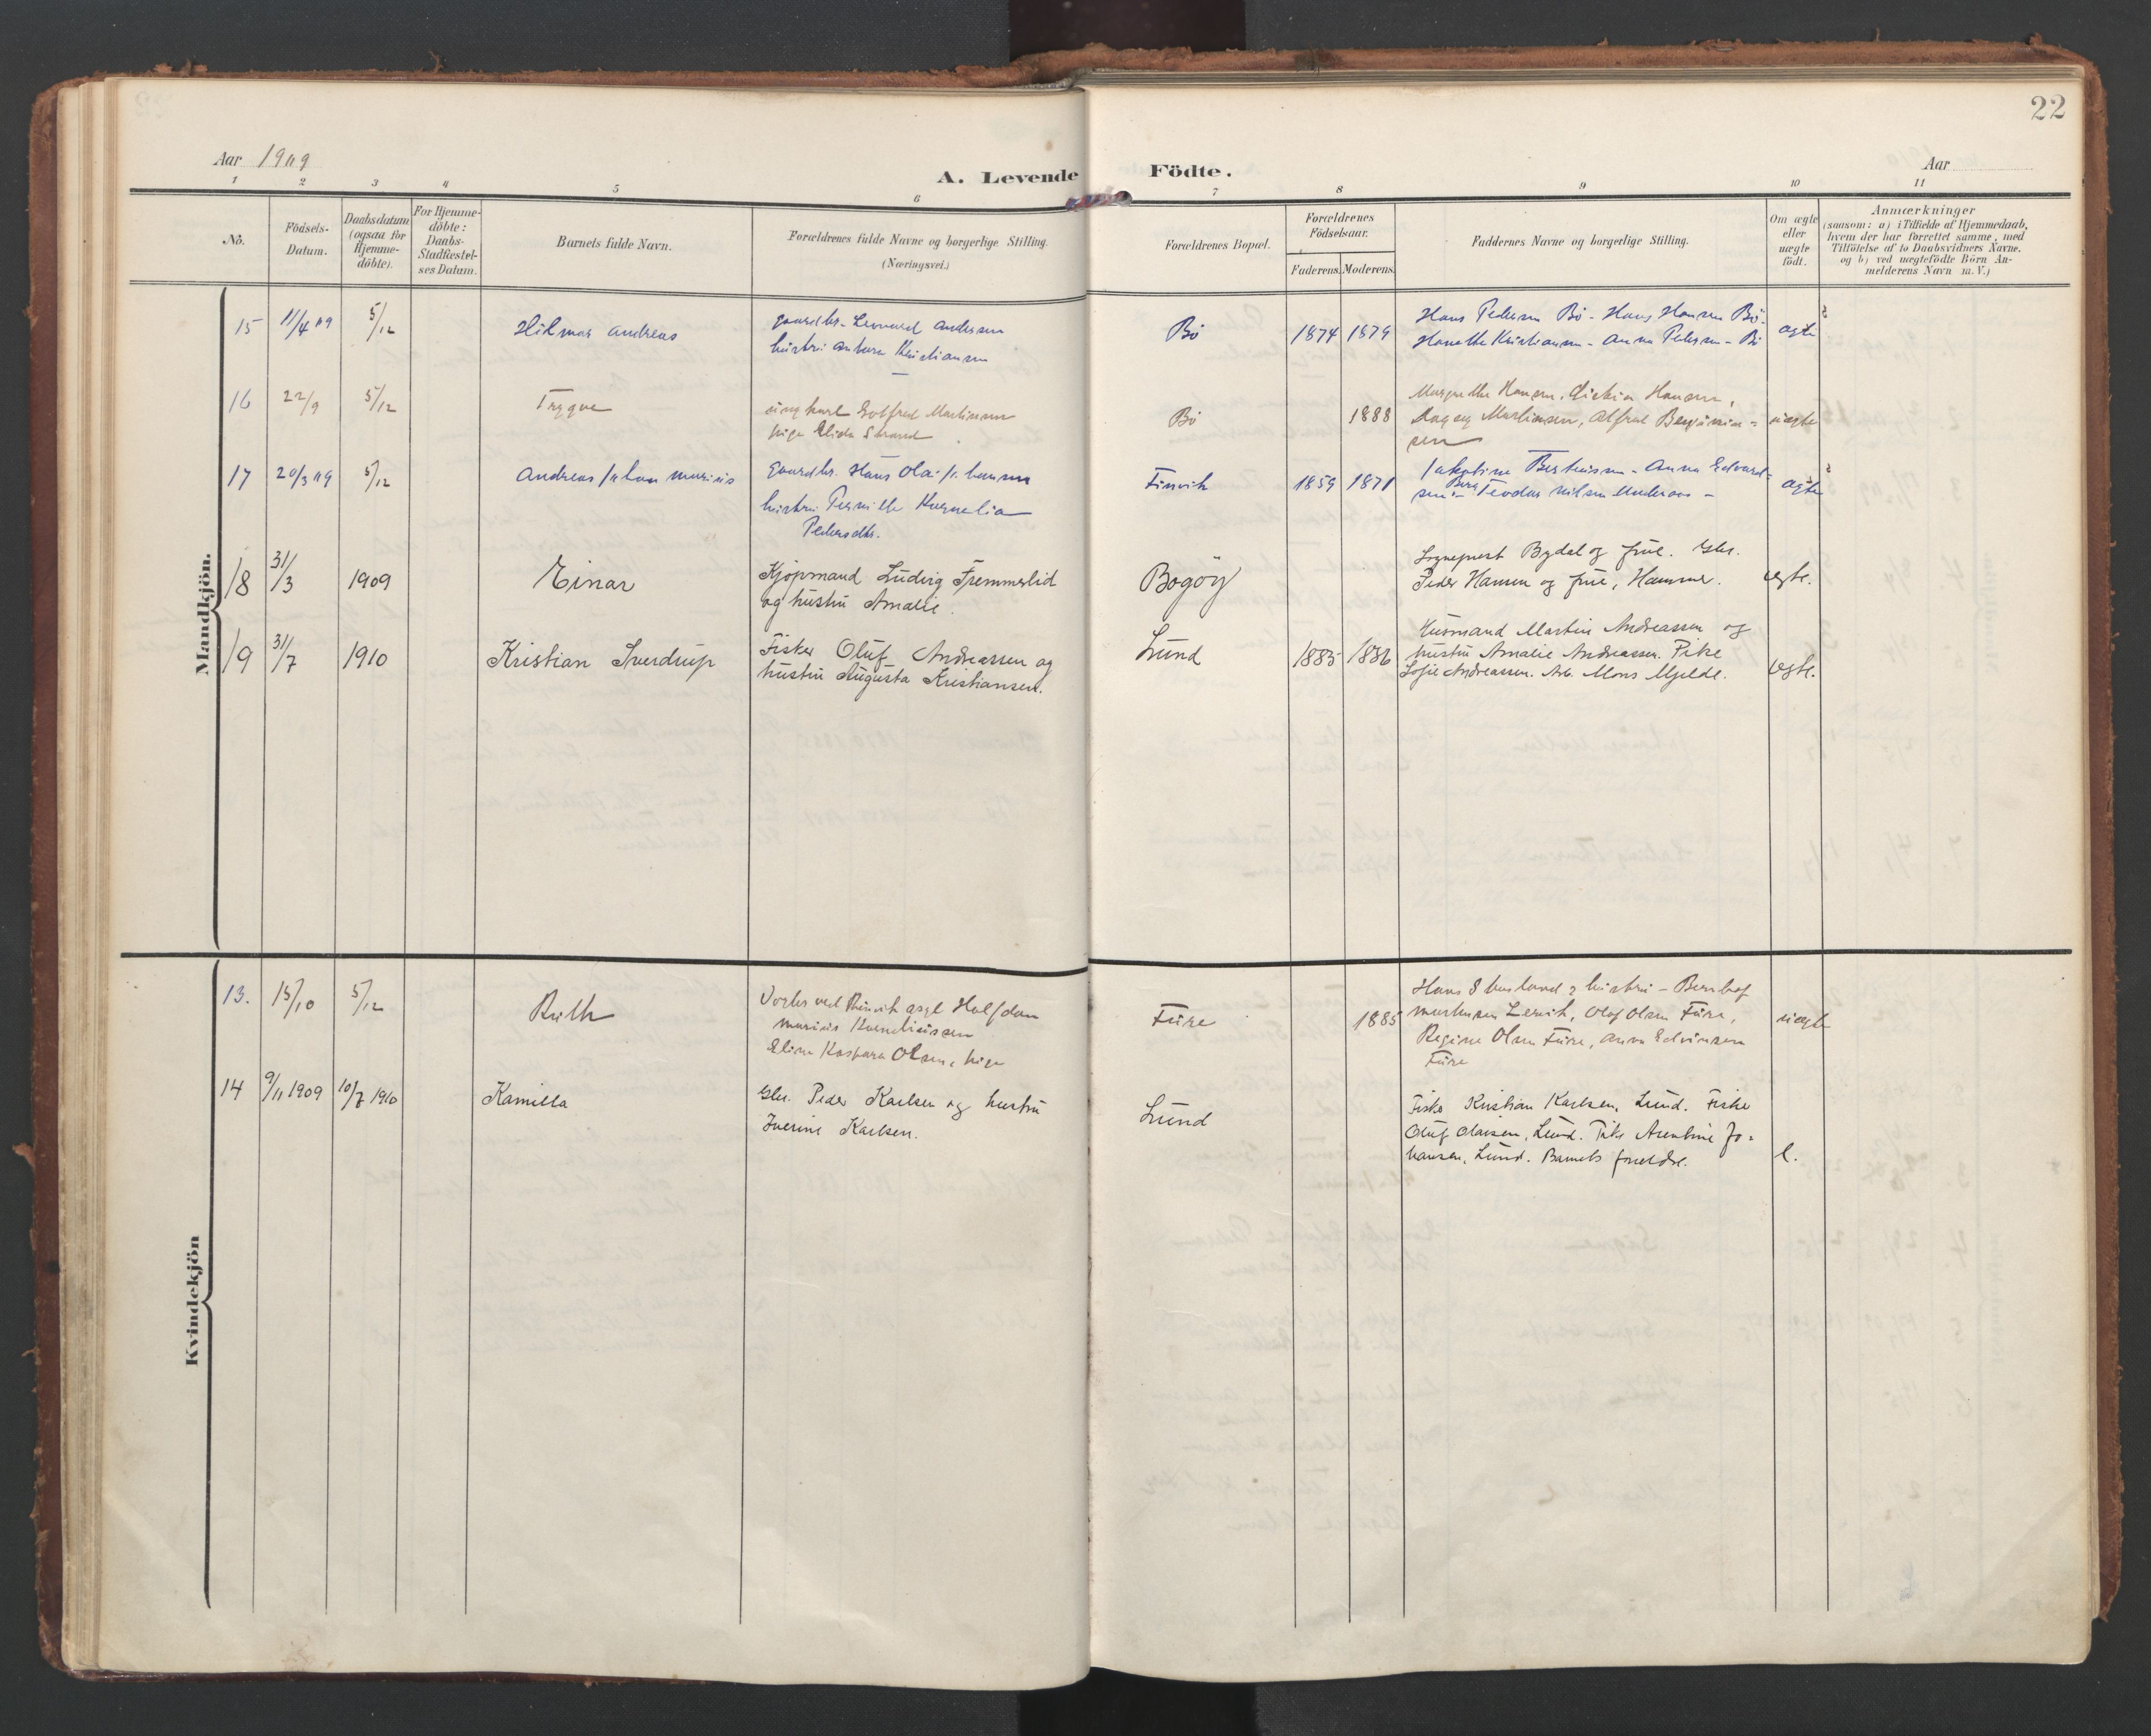 22
Aar 1909
A. Levende Födte.
Aar
1 2 3 4 5 6 7 8 9 10 11
No.
Födsels-
Datum.
Daabsdatum
(ogsaa for
Hjemme-
döbte).
For Hjemme-
döbte:
Daabs-
Stadfæstel-
ses Datum.
Barnets fulde Navn.
Forældrenes fulde Navne og borgerlige Stilling.
(Næringsvei.)
Forældrenes Bopæl.
Forældrenes
Födselsaar.
Faderens. Moderens.
Faddernes Navne og borgerlige Stilling.
Om ægte
eller
uægte
födt.
Anmærkninger
(saasom: a) i Tilfælde af Hjemmedaab,
hvem der har forrettet samme, med
Tilföielse af to Daabsvidners Navne.
og b) ved uægtefödte Börn An-
melderens Navn m. V.)
Mandkjön.
15 11/4 09 5/12 Hilmar Andreas
gaardbr. Leonard Andersen
hustru Antora Kristiansen
Bö 1874 1879
Hans Pedersen Bö - Hans Hansen Bö-
Hanette Kristiansen - Anna Pedersen - Bö
ægte
16 22/9 5/12 Trygve
ungkarl Gotfred Martinsen
pige Elida Strand
Bö 1888
Margrethe Hansen, Hansen,
Dagny Martinsen, Alfred Benjamin=
sen
uægte
17 20/3 09 5/12 Andreas Johan Marius
gaardbr. Hans Ola Johansen
hustru Pernille Kornelia
Pedersdtr.
Finvik 1859 1871
Jakobine Berthinsen - Anna Edvard=
sen - Berg Teodor Nilsen
ægte
18 31/3 1909 Einar
Kjöpmand Ludvig Fremmerlid
og hustru Amalie.
Bogöy
Sogneprest Bydal og frue. Gbr.
Peder Hansen og frue, Hammer.
ægte.
19 31/7 1910 Kristian Sverdrup
Fisker Oluf Andreassen og
hustru Augusta Kristiansen.
Lund 1885 1886
Husmand Martin Andreassen og
hustru Amalie Andreassen. Pike
Sofie Andreassen. Arb. Mons Mjelde.
ægte.
Kvindekjön
13. 15/10 5/12 Ruth
ved asyl Halfdan
Marius Korneliussen
Eline Kaspara Olsen, pige
Fure 1885
Hans hustru -
Martinsen Lervik, Olaf Olsen Fure,
Regine Olsen Fure, Anna Edvinsen
Fure
uægte
14 9/11 1909 10/7 1910 Kamilla
Gbr. Peder Karlsen og hustru
Iverine Karlsen.
Lund
Fisker Kristian Karlsen, Lund. Fisker
Oluf Olaisen, Lund. Pike Arentine Jo=
hansen, Lund. Barnets forældre.
e.